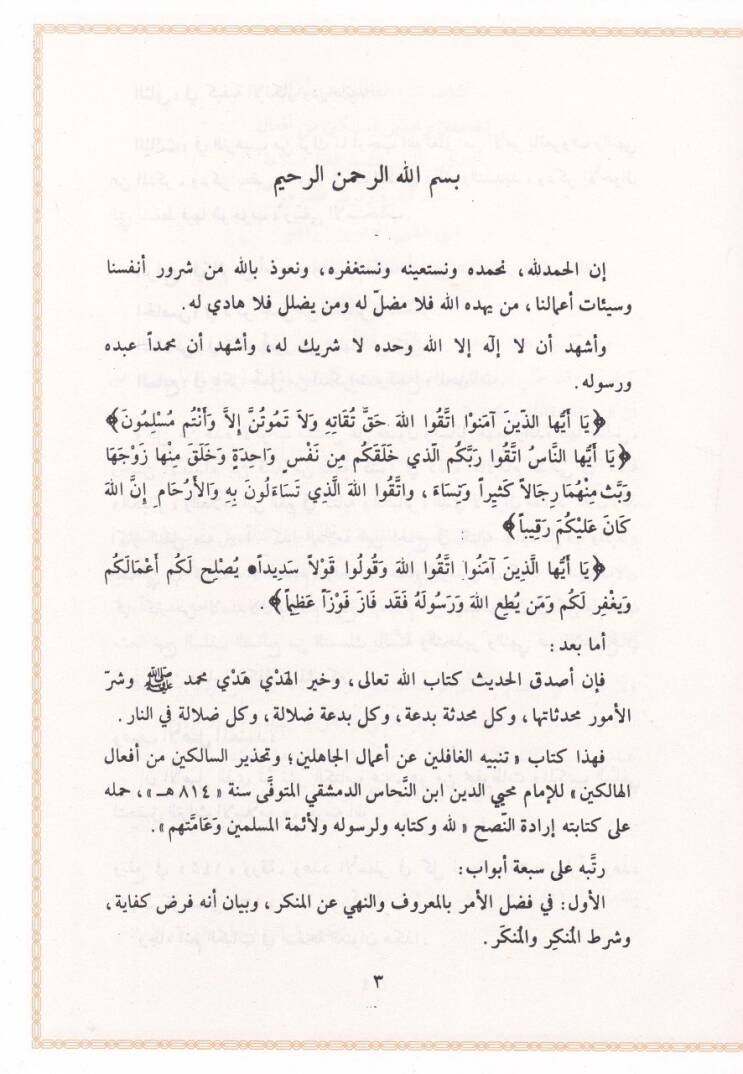 بسم الله الرحمن الرحيم
إن الحمدلله، نحمده ونستعينه ونستغفره، ونعوذ بالله من شرور أنفسنا
وسيئات أعمالنا، من يهده الله فلا مضلّ له ومن يضلل فلا هادي له.
وأشهد أن لا إلٰه إلا الله وحده لا شريك له، وأشهد أن محمداً عبده
ورسوله.
﴿يَا أَيُّها الذّينَ آمَنوْا اتَّقُوا اللهَ حَقَّ تُقَاتِهِ وَلاَ تَمُوتُنَّ إِلاَّ وَأَنْتُم مُسْلِمُونَ﴾
﴿يَا أَيُّها النَّاسُ اتَّقُوا رَبَّكُم الّذي خَلَقَكُم مِن نَفْسٍ وَاحِدَةٍ وَخَلَقَ مِنْها زَوْجَهَا
وَبَثَّ مِنْهُمَا رِجَالاً كَثيراً وَنِسَاءَ، واتَّقُوا اللهَ الَّذِي تَسَاءَلُونَ بِهِ وَالأَرْحَام إِنَّ اللهَ
كَانَ عَلَيْكُم رَقِيباً﴾
﴿يَا أَيُّها الَّذِينَ آمَنُوا اتَّقُوا اللهَ وَقُولُوا قَوْلاً سَدِيداً• يُصْلِح لَكُم أَعْمَالَكُم
وَيَغْفِر لَكُم وَمَن يُطِعِ اللهَ وَرَسُولَهُ فَقَد فَازَ فَوْزَاً عَظِيماً﴾.
أما بعد:
فإن أصدق الحديث كتاب الله تعالى، وخير الهَدْي هَدْي محمد ﷺ وشرّ
الأمور محدثاتها، وكل محدثة بدعة، وكل بدعة ضلالة، وكل ضلالة في النار.
فهذا كتاب «تنبيه الغافلين عن أعمال الجاهلين؛ وتحذير السالكين من أفعال
الهالكين» للإمام محيي الدين ابن النَّحاس الدمشقي المتوفَّى سنة «٨١٤ هـ»، حمله
على كتابته إرادة النّصح «لله وكتابه ولرسوله ولأئمة المسلمين وَعَامَّتهم».
رتَّبه على سبعة أبواب:
الأول: في فضل الأمر بالمعروف والنهي عن المنكر، وبيان أنه فرض كفاية،
وشرط المُنكِر والمُنكَر.
٣